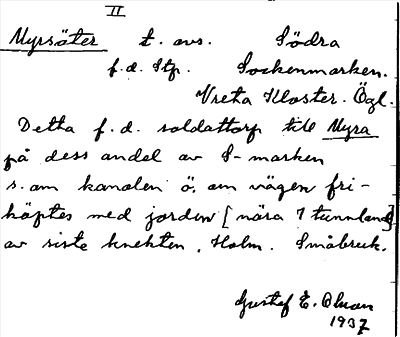 II
Myrsäter t. avs. Södra
f.d. Stp. Sockenmarken.
Vreta Kloster. Ögl.
Detta f.d. soldattorp till Myra
på dess andel av S-marken
s. om kanalen ö. om vägen fri-
köptes med jorden [nära 7 tunnland]
av siste knekten, Holm. Småbruk.
Gustaf E. Olsson
1937